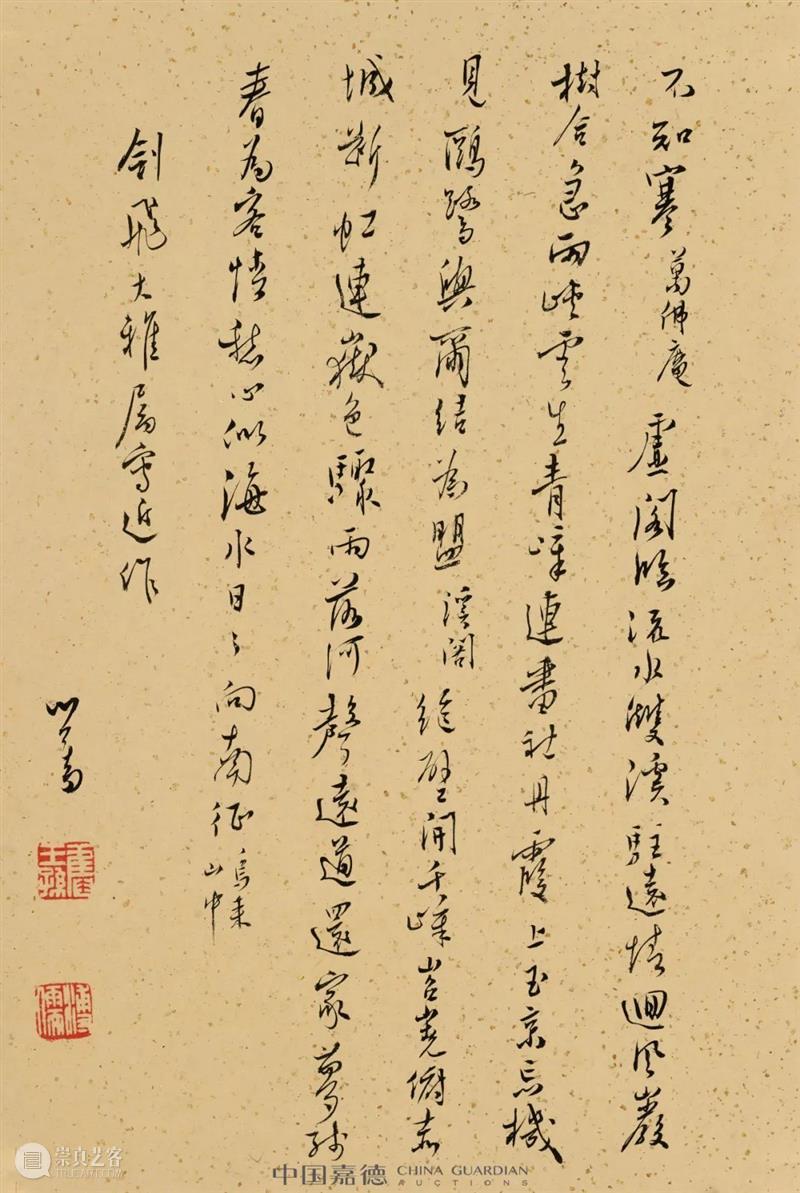 不知寒萬佛庵虛閣臨流水雙溪駐遠情迴風巖
樹合急雨峽雲生青嶂連畬社丹霞上玉京忘機
見鷗鷺與爾結為盟溪閣絕壁開千嶂岧嶤俯赤
城斷虹連嶽色驟雨落河聲遠道還家夢殘
春為客情愁心似海水日日向南征烏來山中
劍飛大雅屬寫近作
心畬
溥儒
崇真艺客
中国嘉德 CHINA GUARDIAN AUCTIONS